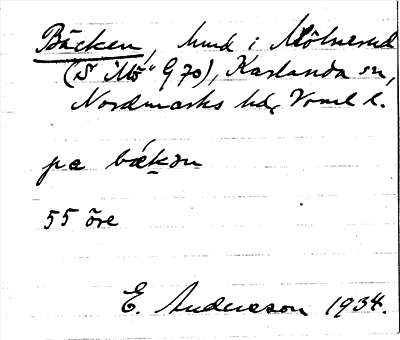 Bäcken, hmd i Mölnerud
(S "Mö" G 70), Karlanda sn,
Nordmarks hd, Vrml l.
pa bäkən
55 öre
E. Andersson 1934.